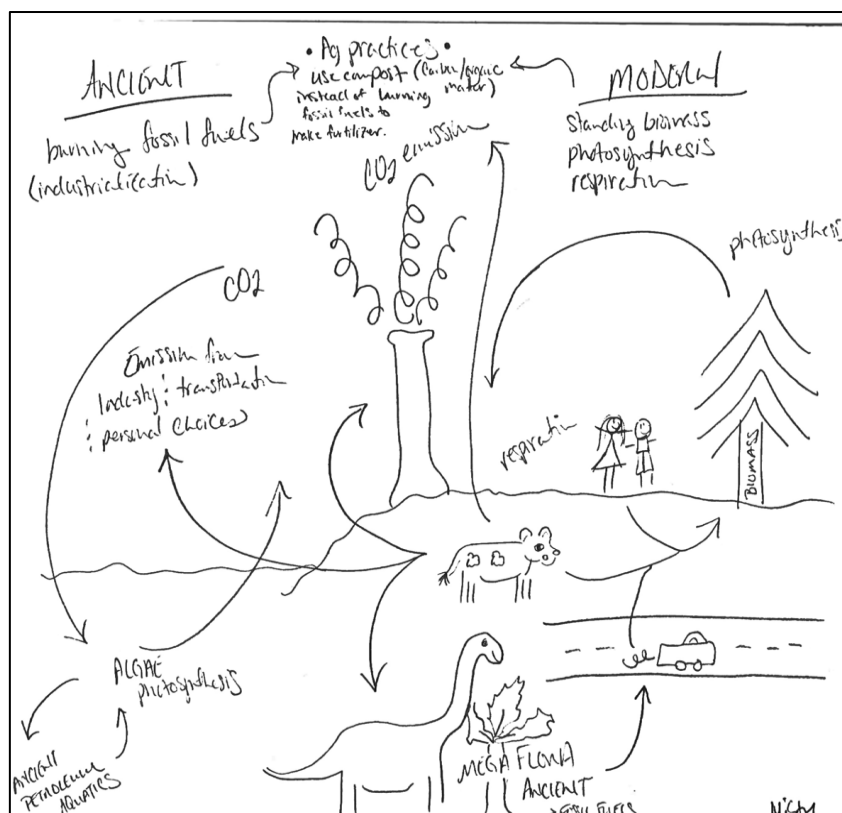 ANCIENT
burning fossil fuels
(industrialization)
• Ag practices •
use compost (Carbon/organic
instead of burning matter)
fossil fuels to
make fertilizer.
MODERN
Standing biomass
photosynthesis
respiration
CO2 emission
photosynthesis
CO2
Emission from
Industry: transportation
: personal choices
respiration
BIOMASS
ALGAE
photosynthesis
ANCIENT
PETROLEUM
AQUATICS
MEGA FLORA
ANCIENT
FOSSIL FUELS